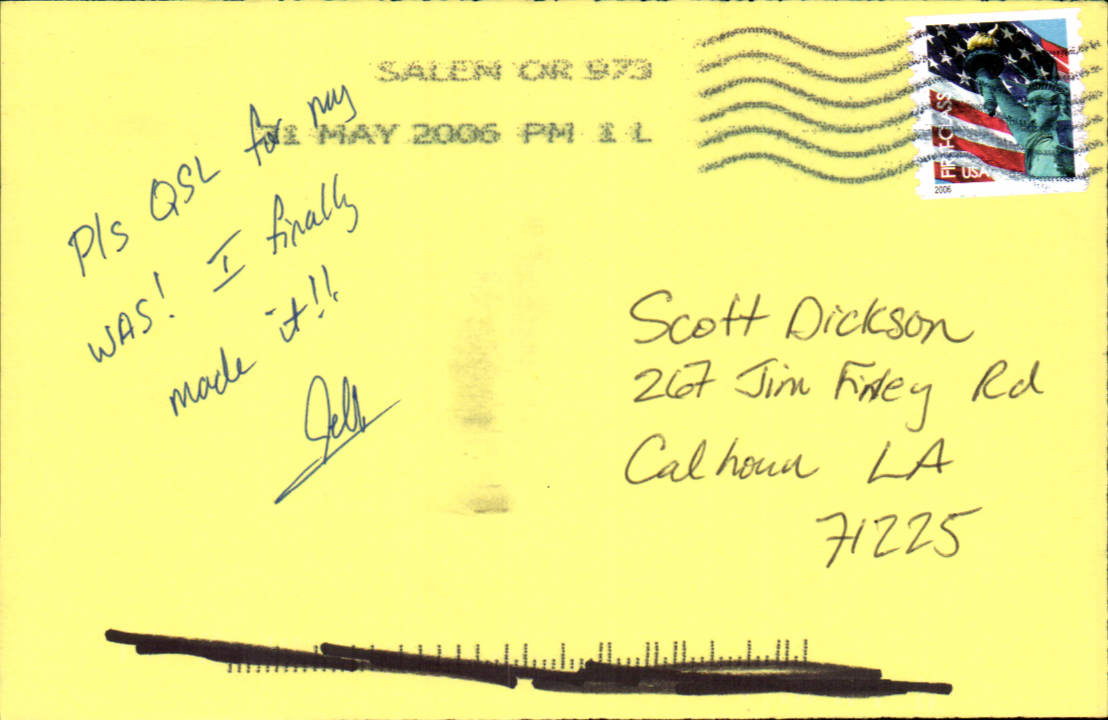 SALEM OR 973
MAY 2006 PM 1 L
FIRST-CLASS
USA
2006
Pls QSL for my
WAS! I finally
made it!!
Jeff
Scott Dickson
267 Jim Finley Rd
Calhoun LA
71225